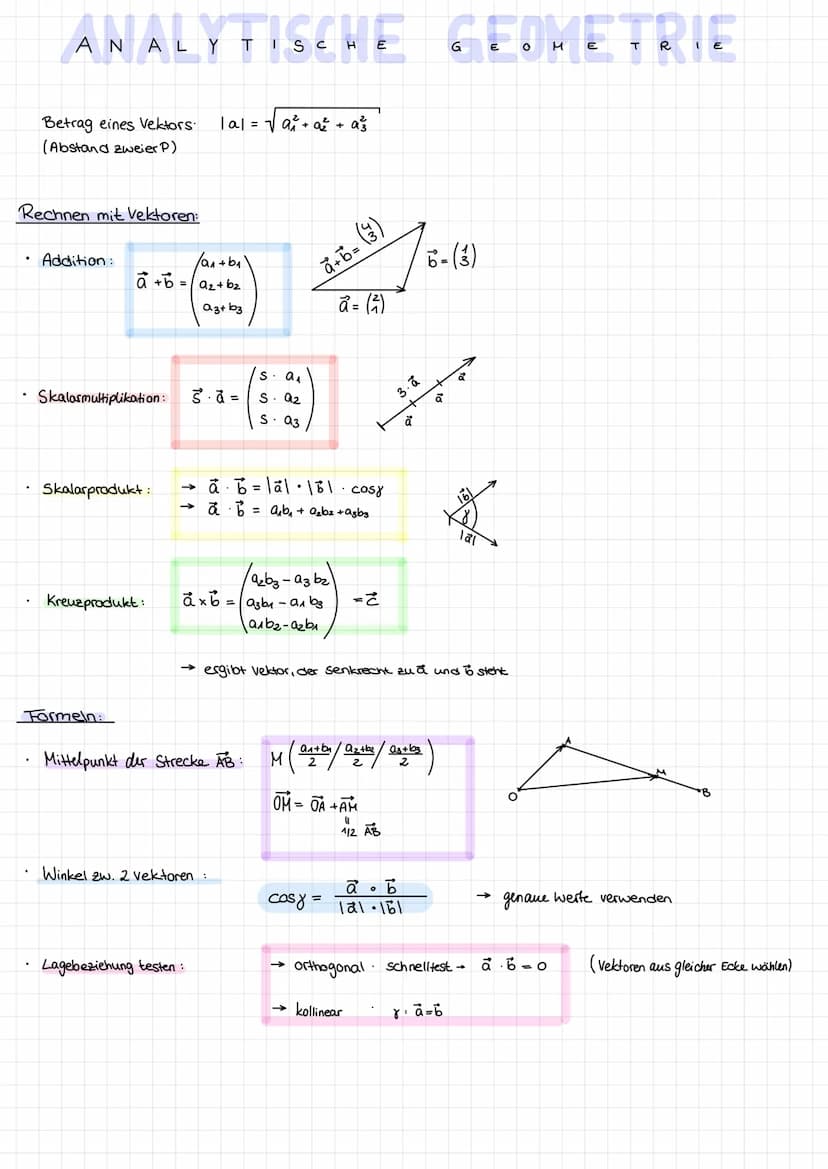 ANALYTISCHE GEOMETRIE
Betrag eines Vektors: |a| = √(a₁² + a₂² + a₃²)
(Abstand zweier P)
Rechnen mit Vektoren:
· Addition: a⃗ + b⃗ = (a₁+b₁ a₂+b₂ a₃+b₃)
a⃗+b⃗ = (4 3)
b⃗ = (1 3)
a⃗ = (2 1)
· Skalarmultiplikation: s⃗ · a⃗ = (s · a₁ s · a₂ s · a₃)
3·a⃗
a⃗ a⃗ a⃗
· Skalarprodukt: → a⃗ · b⃗ = |a⃗| · |b⃗| · cosγ
→ a⃗ · b⃗ = a₁b₁ + a₂b₂ + a₃b₃
|b⃗| γ |a⃗|
· Kreuzprodukt: a⃗ × b⃗ = (a₂b₃ - a₃b₂ a₃b₁ - a₁b₃ a₁b₂ - a₂b₁) = c⃗
→ ergibt Vektor, der senkrecht zu a⃗ und b⃗ steht
Formeln:
· Mittelpunkt der Strecke AB: M((a₁+b₁)/2 / (a₂+b₂)/2 / (a₃+b₃)/2)
OM = OA + AM
=
1/2 AB
O A M B
· Winkel zw. 2 Vektoren: cosγ = (a⃗ ∘ b⃗)/(|a⃗| · |b⃗|) → genaue Werte verwenden
· Lagebeziehung testen: → orthogonal · schnelltest → a⃗ · b⃗ = 0 (Vektoren aus gleicher Ecke wählen)
→ kollinear · γ · a⃗ = b⃗